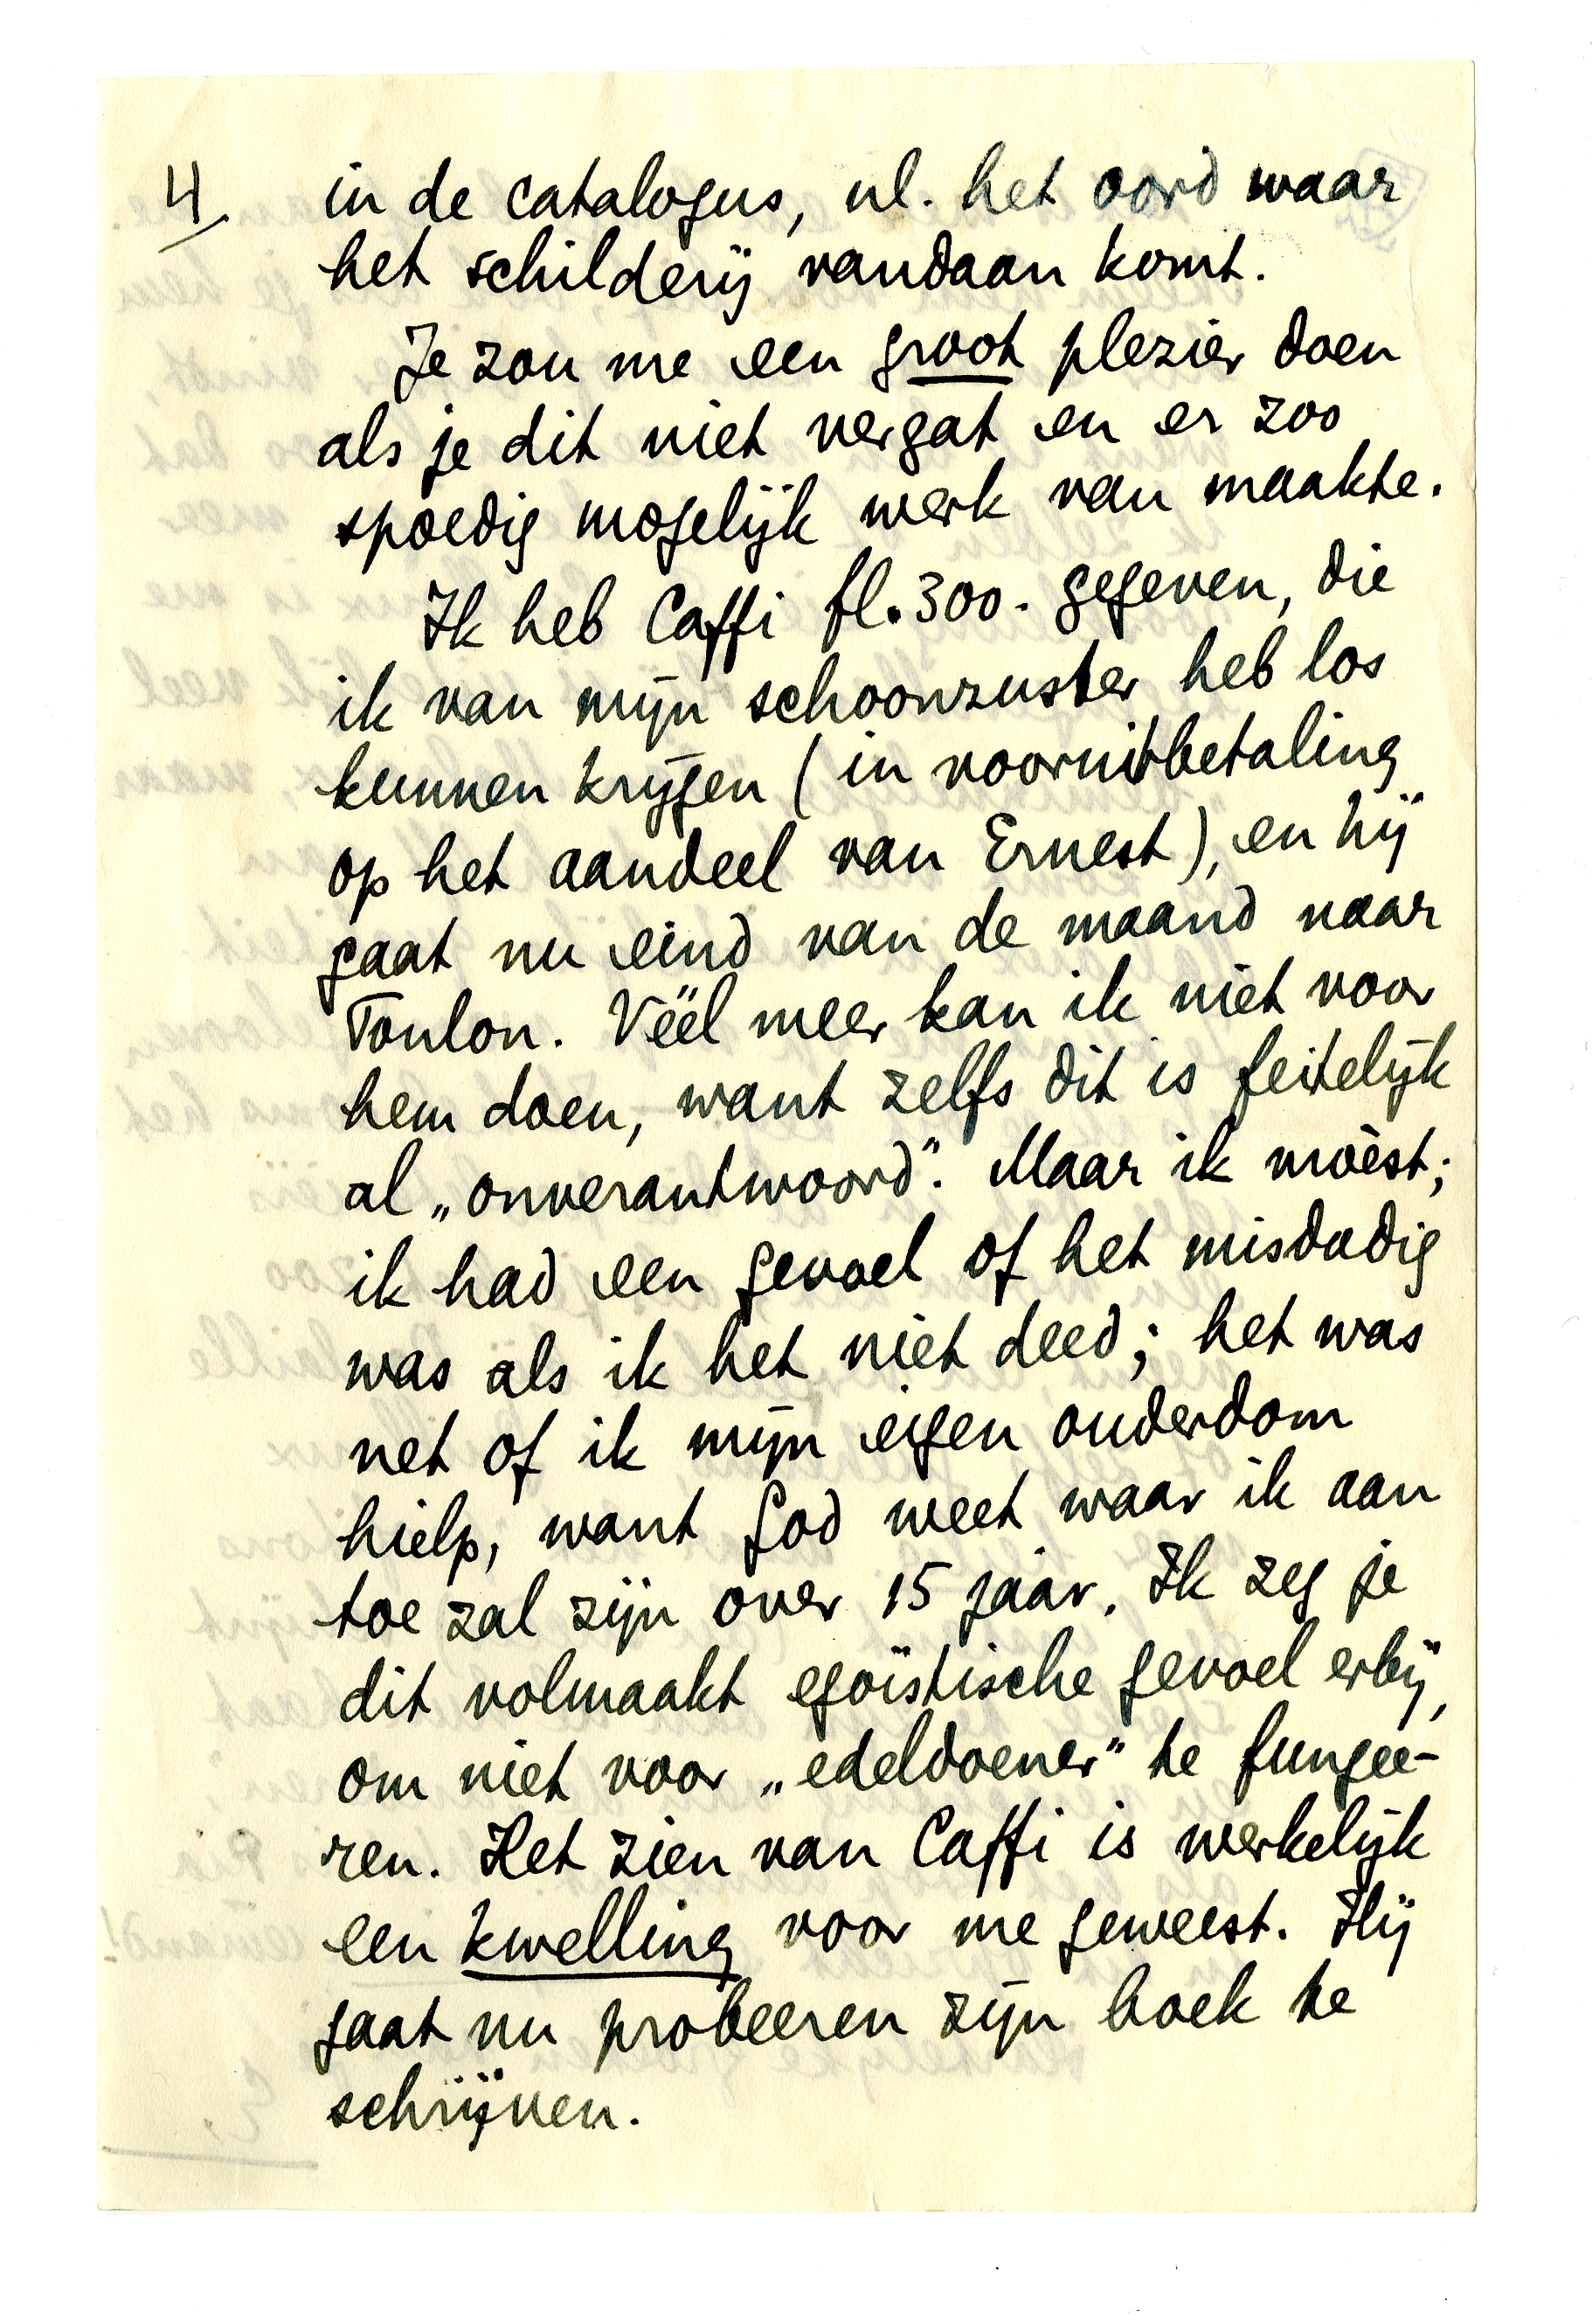 4.
in de catalogus, nl. het oord waar
het schilderij vandaan komt.
Je zou me een groot plezier doen
als je dit niet vergat en er zoo
spoedig mogelijk werk van maakte.
Ik heb Caffi fl. 300.- gegeven, die
ik van mijn schoonzuster heb los
kunnen krijgen (in vooruitbetaling
op het aandeel van Ernest), en hij
gaat nu eind van de maand naar
Toulon. Véél meer kan ik niet voor
hem doen, want zelfs dit is feitelijk
al „onverantwoord". Maar ik moèst;
ik had een gevoel of het misdadig
was als ik het niet deed; het was
net of ik mijn eigen ouderdom
hielp, want God weet waar ik aan
toe zal zijn over 15 jaar. Ik zeg je
dit volmaakt egoïstische gevoel erbij,
om niet voor „edeldoener" te fungee-
ren. Het zien van Caffi is werkelijk
een kwelling voor me geweest. Hij
gaat nu probeeren zijn boek te
schrijven.